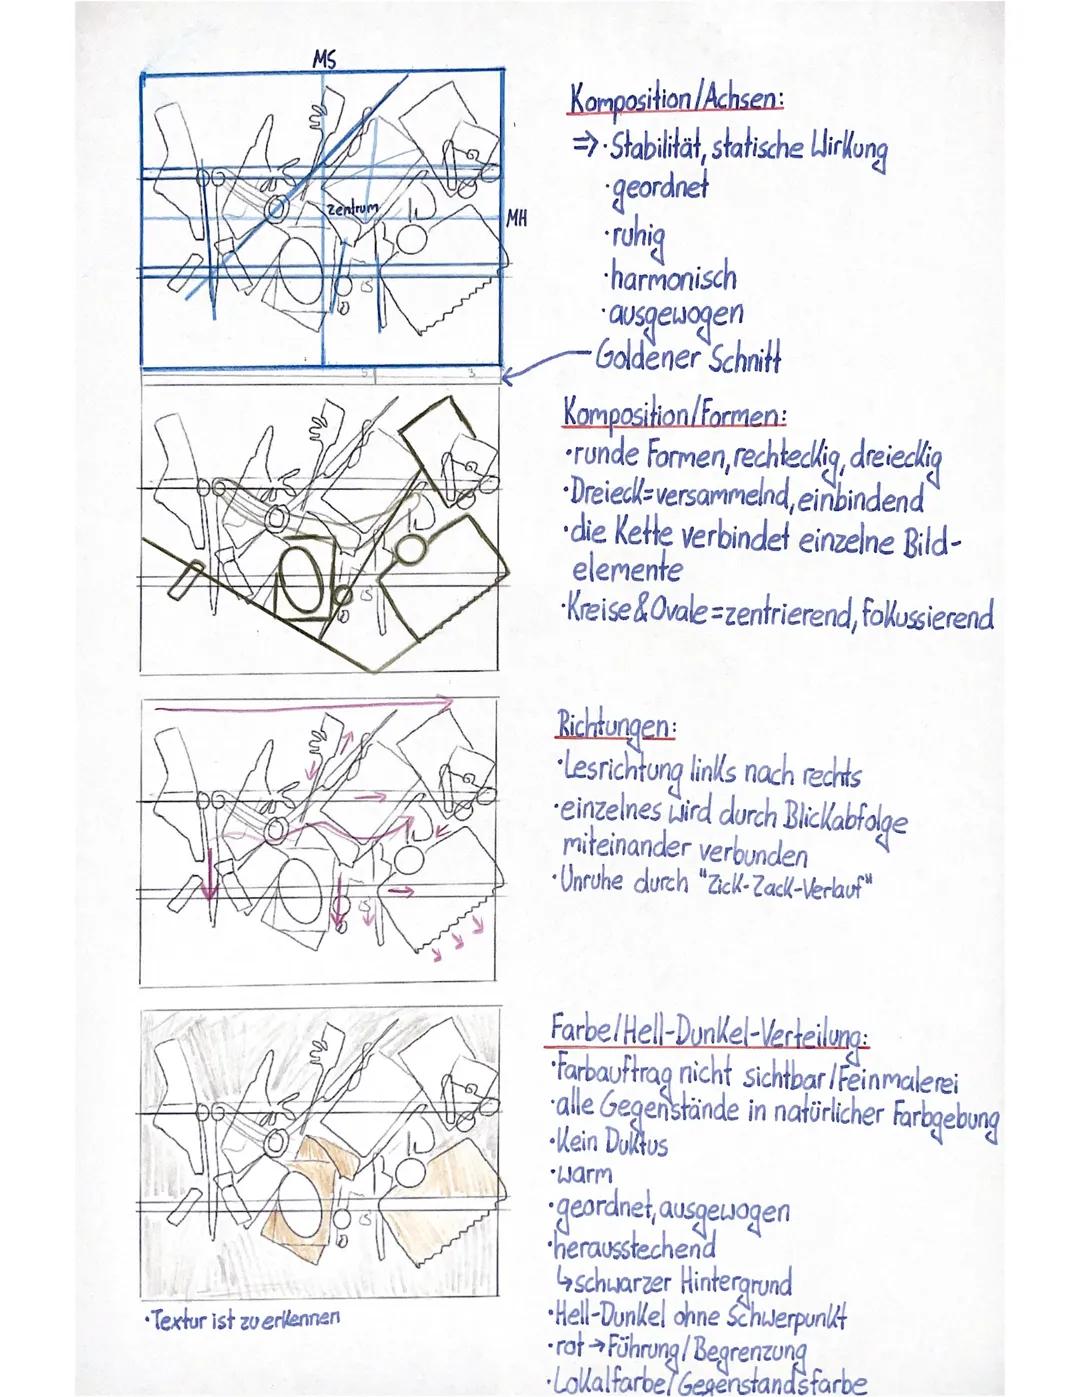 MS
Zentrum
MH
5
3
Komposition/Achsen:
=> · Stabilität, statische Wirkung
· geordnet
· ruhig
· harmonisch
· ausgewogen
Goldener Schnitt
Komposition/Formen:
· runde Formen, rechteckig, dreieckig
· Dreieck = versammelnd, einbindend
· die Kette verbindet einzelne Bild-
elemente
· Kreise & Ovale = zentrierend, fokussierend
Richtungen:
· Lesrichtung links nach rechts
· einzelnes wird durch Blickabfolge
miteinander verbunden
· Unruhe durch "Zick-Zack-Verlauf"
Farbe/Hell-Dunkel-Verteilung:
· Farbauftrag nicht sichtbar/Feinmalerei
· alle Gegenstände in natürlicher Farbgebung
· Kein Duktus
· warm
· geordnet, ausgewogen
· herausstechend
↳ schwarzer Hintergrund
· Hell-Dunkel ohne Schwerpunkt
· rot → Führung/Begrenzung
· Lokalfarbe/Gegenstandsfarbe
· Textur ist zu erkennen